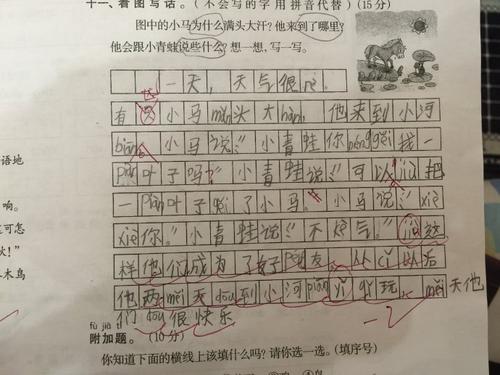 十一、看图写话。(不会写的字用拼音代替)(15分)
图中的小马为什么满头大汗?他来到了哪里?
他会跟小青蛙说些什么?想一想,写一写。
一天,天气很rè。
有 小马mǎn头大hàn,他来到小河
biān 小马说:“小青蛙你néng gěi我一
piàn叶子吗?”小青蛙说:“可以”jiù把
一piàn叶子gěi了小马。小马说:“xiè
xiè你。”小青蛙说:“不kè气。”jiù这
样他们成为了好péng友 从cǐ以后
他两měi天dōu到小河biān yì qǐ玩。měi天他
们dōu很快乐
语地
响。
在可怎
伙!”
木鸟
fù jiā tí
附加题。(10分)
你知道下面的横线上该填什么吗?请你选一选。(填序号)